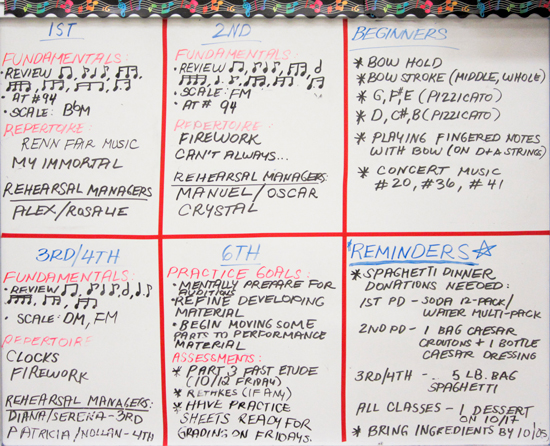 1ST
FUNDAMENTALS:
• REVIEW
• AT #94
• SCALE: BbM
REPERTOIRE
RENN FAIR MUSIC
MY IMMORTAL
REHEARSAL MANAGERS
ALEX/ROSALIE
2ND
FUNDAMENTALS:
• REVIEW
• SCALE: FM
• AT# 94
REPERTOIRE
FIREWORK
CAN'T ALWAYS...
REHEARSAL MANAGERS:
MANUEL/OSCAR
CRYSTAL
BEGINNERS
* BOW HOLD
* BOW STROKE (MIDDLE, WHOLE)
* G, F#, E (PIZZICATO)
* D, C#, B (PIZZICATO)
* PLAYING FINGERED NOTES
WITH BOW (ON D+A STRINGS)
* CONCERT MUSIC
#20, #36, #41
3RD/4TH
FUNDAMENTALS:
• REVIEW
• SCALE: DM, FM
REPERTOIRE
CLOCKS
FIREWORK
REHEARSAL MANAGERS:
DIANA/SERENA-3RD
PATRICIA/NOLLAN-4TH
6TH
PRACTICE GOALS:
• MENTALLY PREPARE FOR
AUDITIONS
• REFINE DEVELOPING
MATERIAL
• BEGIN MOVING SOME
PARTS TO PERFORMANCE
MATERIAL
ASSESSMENTS:
* PART 3 FAST ETUDE
(10/12 FRIDAY)
* RETAKES (IF ANY)
* HAVE PRACTICE
SHEETS READY FOR
GRADING ON FRIDAYS.
REMINDERS
* SPAGHETTI DINNER
DONATIONS NEEDED:
1ST PD - SODA 12-PACK/
WATER MULTI-PACK
2ND PD - 1 BAG CAESAR
CROUTONS + 1 BOTTLE
CAESAR DRESSING
3RD/4TH - 5 LB. BAG
SPAGHETTI
ALL CLASSES - 1 DESSERT
ON 10/17
* BRING INGREDIENTS BY 10/05